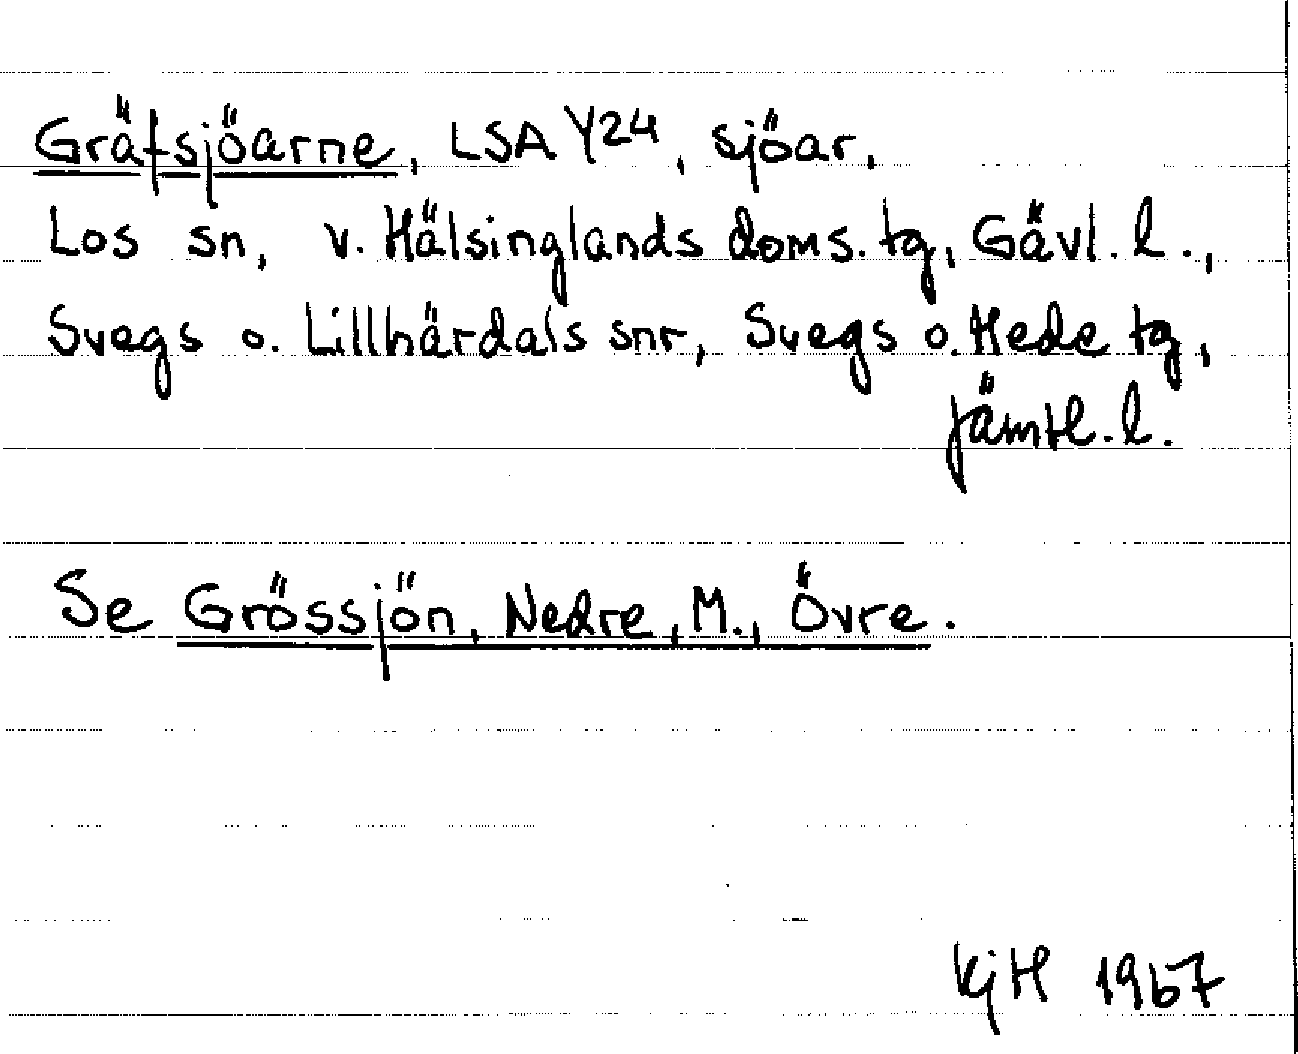 Gräfsjöarne, LSA Y24, sjöar,
Los sn, v. Hälsinglands doms. tg, Gävl. l.,
Svegs o. Lillhärdals snr, Svegs o. Hede tg,
Jämtl. l.
Se Grössjön, Nedre, M., Övre.
KjH 1967